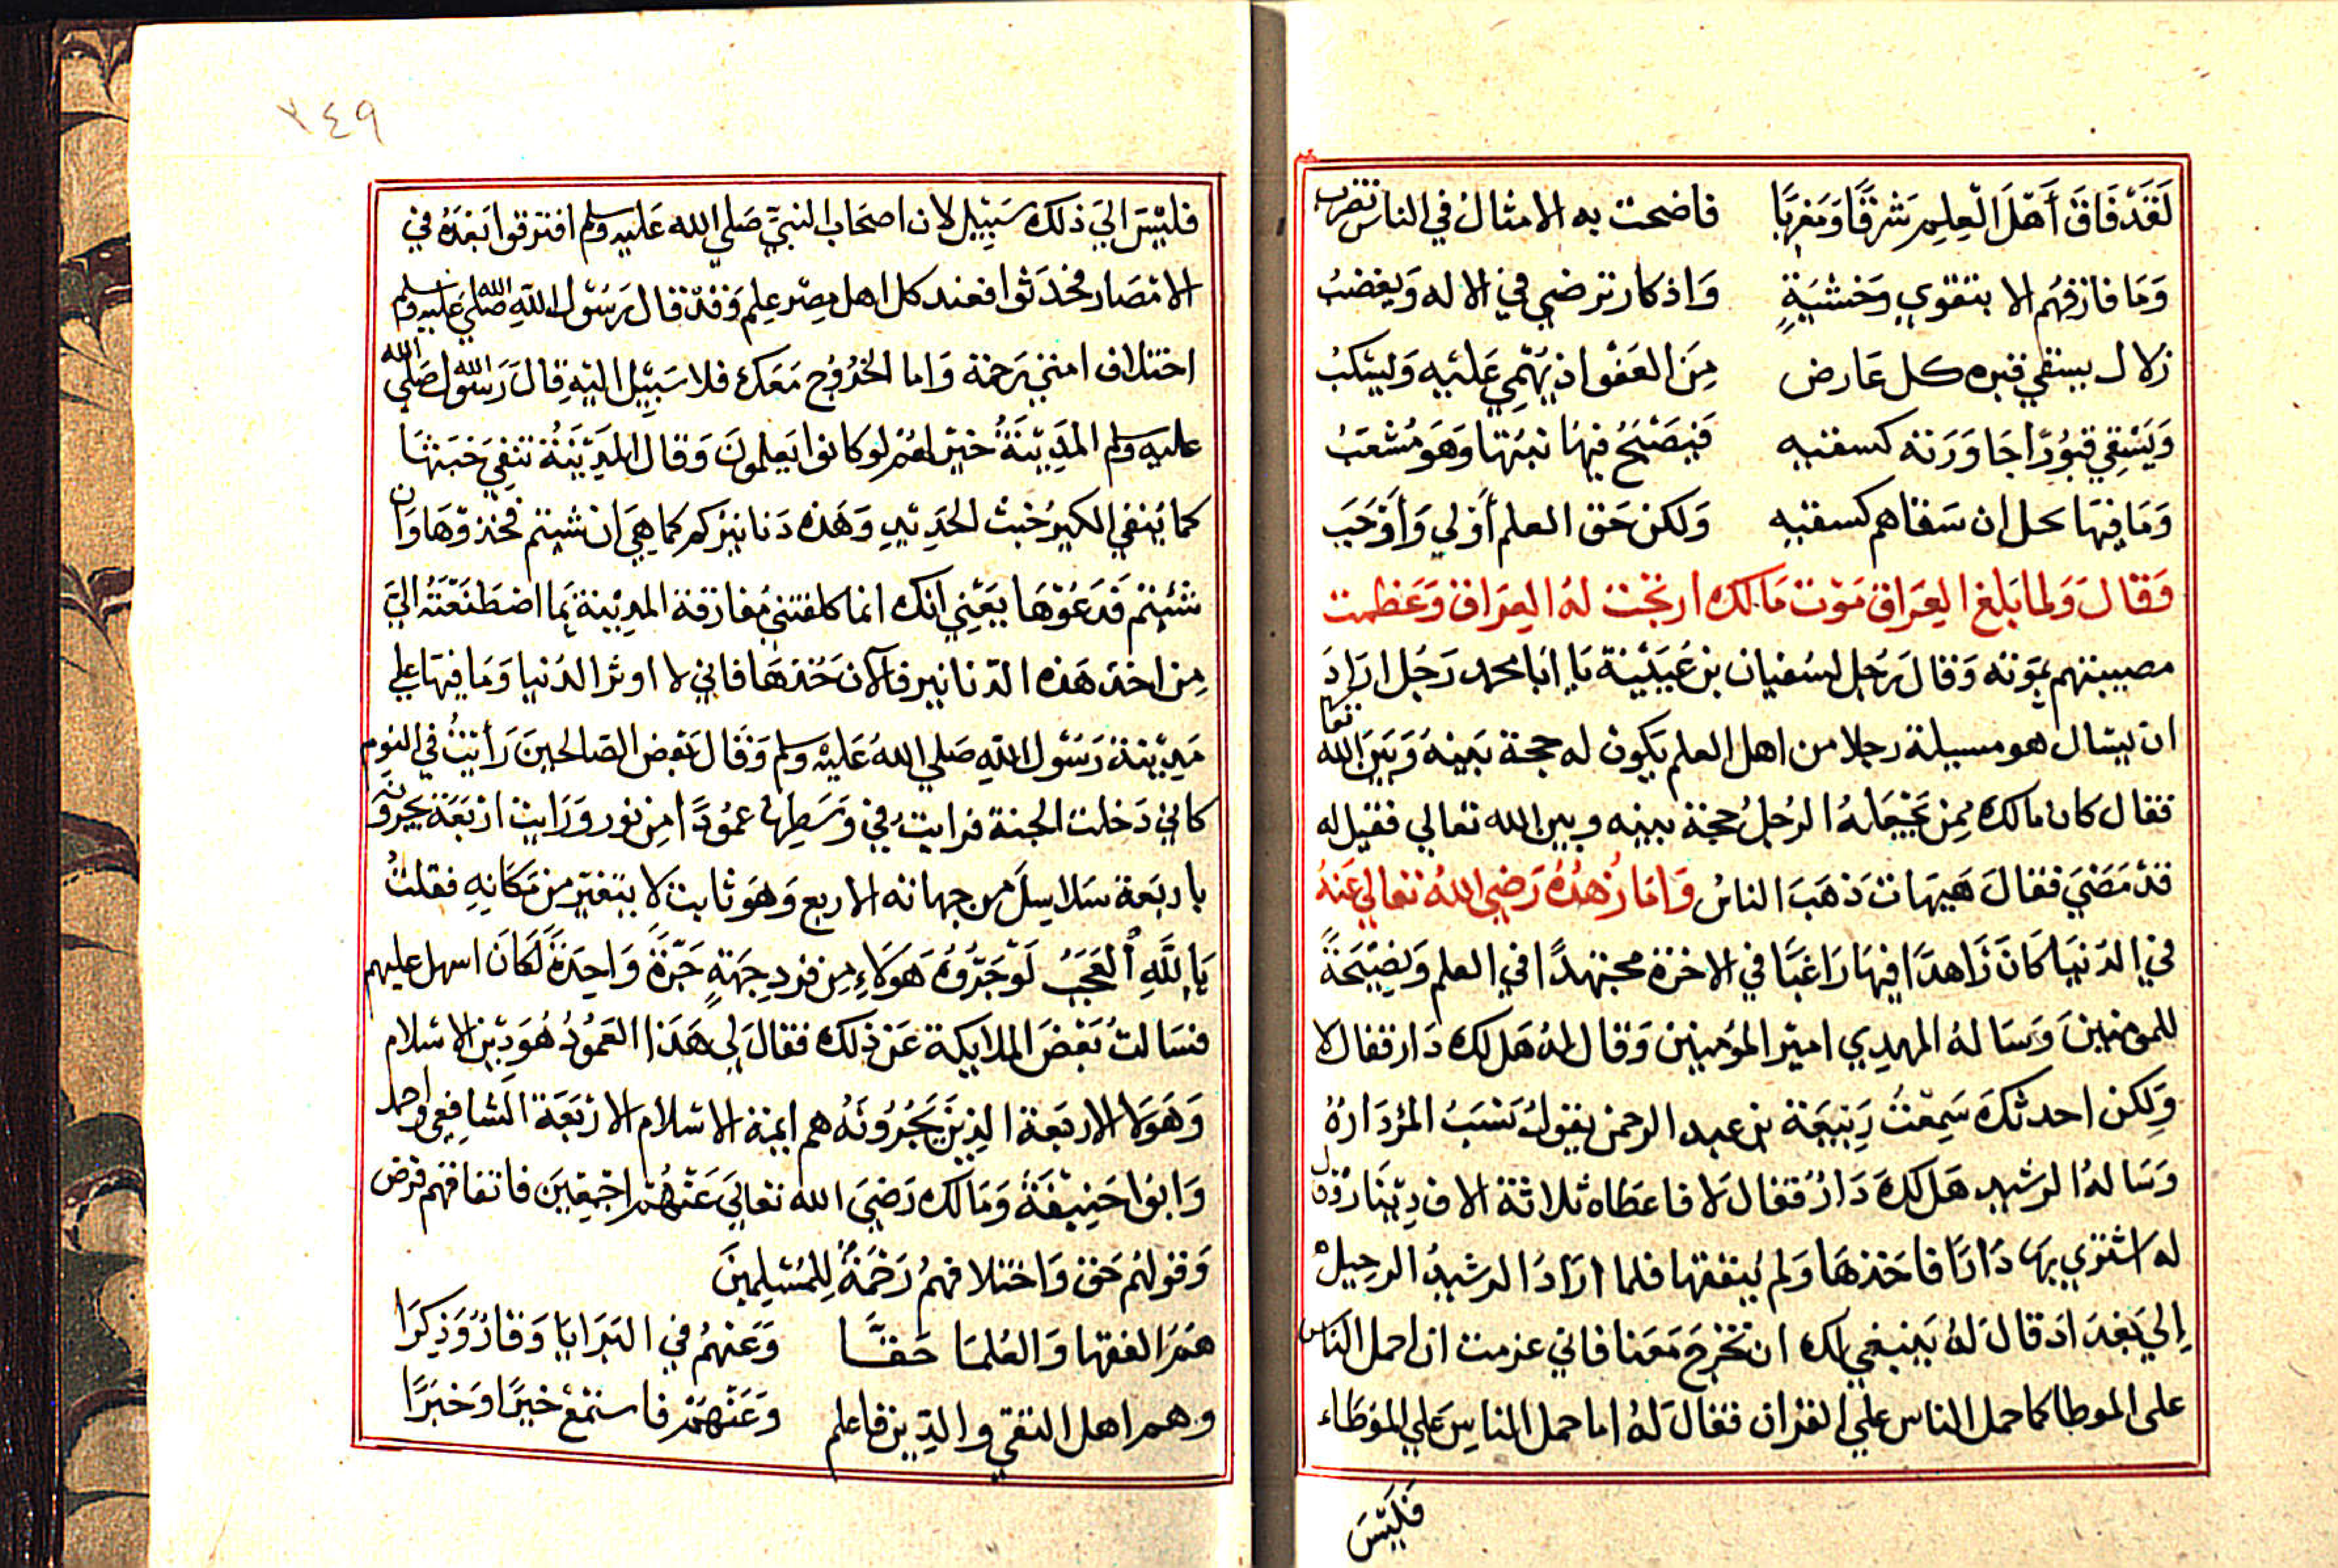 لَقَدْ فَاقَ أَهْلَ الْعِلْمِ شَرْقًا وَمَغْرِبًا فاضحت به الامثال في الناس تضرب
وَمَا فازقهُم الا بتقوي وخَشْيَةٍ وَاذكار ترضي في الاله وَيغضبُ
زلال يسقي قبره كل عَارض مِنَ العَفْو اذ يَهْمِي عَليْهِ وَيَسْكبُ
وَيَسْقِي قبُورًا جَاوَرَته كسقيه فَيَصْبَحُ فيهَا نبتها وَهَو مُشْعَبُ
وَمَا فيهَا بخل ان سَقاهم كسقيه وَلكن حَق العلم أَوْلي وَأَوْجَبَ
فَقَالَ وَلما بَلغ العِرَاق مَوْت مَالك ارتجت لهُ العِرَاق وَعَظمت
مصيبتهم بمَوته وَقالَ رَجُل لسُفيان بن عُيَيْنة يَا ابَا محمد رَجُل ارَادَ
ان يَسْال هو مسيلة رجلا من اهل العلم يَكون له حجة بَينهُ وَبَيَن الله تعا
فقال كان مالك مِمن يَجْعَلهُ الرجُلُ حجة بينه وبين الله تعالي فقيل له
قدْ مَضَيَ فقالَ هَيهَات ذهَبَ الناسُ وَامَا زُهْدُهُ رَضِيَ اللهُ تعالي عَنهُ
في الدّنيَا كَانَ زَاهدًا فيهَا رَاغبًا في الاخرة مجتهدًا في العلم وَنصِيْحَةً
للمومنينَ وَسَالهُ المهدي اميْر المؤمِنِين وَقال لهُ هَل لك دَار فقال لا
وَلكِن احدثكَ سَمِعْتُ رَبيْعَة بن عبد الرحمن يقولُ نَسَبُ المرْدَارُهُ
وَسَالهُ الرشيد هَل لكَ دَارٌ فقال لا فاعطاه ثلاثة الاف دِيْنَار وقال
له اشتري بهَا دَارًا فاخذهَا وَلم يُنفقها فلما ارَادَ الرشيدُ الرحِيلَ
اِلي بَغدَاد قالَ لهُ يَنبغي لك ان تخرجَ مَعَنا فاني عزمت ان احمل الناس
على الموطا كما حمل الناس علي القرْان فقالَ لهُ اما حمل الناسِ عَلي الموَطَاء
فَلَيْسَ
٣٤٩
فليْسَ اليَ ذلك سَبِيْل لان اصحَاب النبيّ صَلي الله عَليه وسلم افترقوا بَعْدَهُ في
الامْصَار فحَدّثوا فعند كل اهل مِصْر عِلم وَقدْ قال رَسُوْل اللّهِ صَلي الله عَليه وسلم
اختلاف امتي رَحمة وَاما الخُرُوْج مَعَك فلا سَبِيْل اليْهِ قالَ رَسُوْل الله صَلي الله
عليه وسلم المَدِيْنَةُ خيْرٌ لهُم لو كانوا يَعلمونَ وَقال المَدِيْنَةُ تنفِي خَبَثهَا
كما يَنفي الكيرُ خبث الحَدِيْدِ وَهَذه دَنانيْركم كما هِيَ ان شيتم فخذوْهَا وَان
شئتم فَدَعُوْهَا يَعْنِي انك انما كلفتني مُفارقة المدِيْنة بمَا اصْطَنَعْتَهُ اليَّ
مِن اخذ هَذه الدّنانير فالآن خُذهَا فاني لا اوثر الدُنيا وَمَا فيهَا علي
مَدِيْنة رَسُوْل اللهِ صَلي اللهُ عَليْه وسلم وَقالَ بَعْض الصّالحِينَ رَأيْتُ في النوم
كاني دَخلت الجنة فرايتُ في وَسَطِهَا عمُوْدًا مِن نور وَرَايت ارْبَعَة يَجرونه
باربَعَة سَلاسِلَ من جهاته الاربع وَهَوَ ثابت لا يتغيّر من مَكانهِ فقلتُ
يَا للَّهِ الْعَجَبُ لَوْ جَرّوْهُ هَوَلَاءِ مِن فرد جِهَةٍ جَرّةً وَاحِدَةً لَكَانَ اسهل عليهم
فسَالتُ بَعْضَ الملايكة عَن ذلك فقالَ لِي هَذا العَمُوْدُ هُوَ دِيْن الاسْلام
وَهَوَلا الاربَعَة الذِيْنَ يَجُرُوْنَهُ هم ايمة الاسْلام الارْبَعَة الشافِعِي واحمد
وَابُوا حَنِيْفَةَ وَمَالك رَضِيَ الله تعاليَ عَنْهُم اجْمَعِينَ فاتفاقهم فرض
وَقولهُم حَق وَاختلافهمُ رَحْمَةُ لِلْمُسْلِمِينَ
همَ الفقها وَالعُلمَا حَقًّا وَعَنهُم في البَرَايَا وَقارٌ وَذِكرًا
وهم اهل التقي والدِين فاعلم وَعَنْهم فاستَمْع خيرًا وَخبَرًا